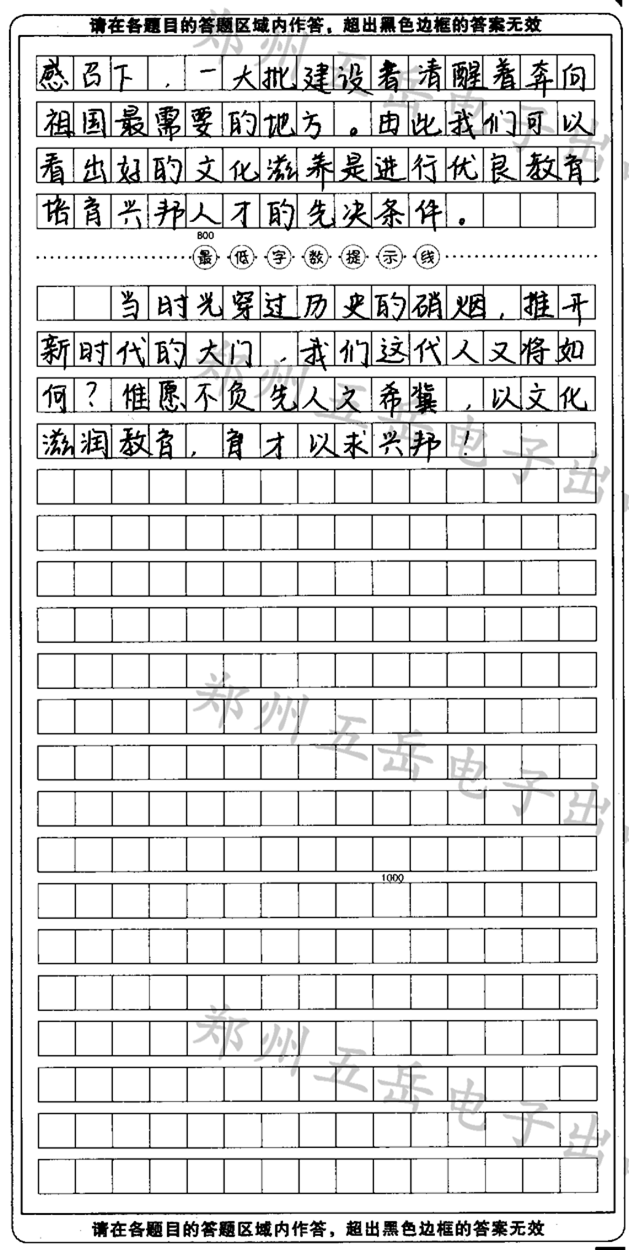 请在各题目的答题区域内作答，超出黑色边框的答案无效
感召下，一大批建设者清醒着奔向
祖国最需要的地方。由此我们可以
看出好的文化滋养是进行优良教育，
培育兴邦人才的先决条件。
800
最低字数提示线
当时光穿过历史的硝烟，推开
新时代的大门，我们这代人又将如
何？惟愿不负先人之希冀，以文化
滋润教育，育才以求兴邦！
1000
请在各题目的答题区域内作答，超出黑色边框的答案无效
郑州五岳电子出
郑州五岳电子出
郑州五岳电子出
郑州五岳电子出